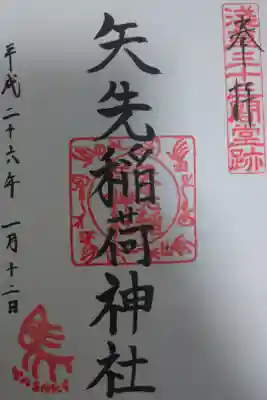 奉拝
浅草三十三間堂跡
矢先稲荷神社
平成二十六年 一月十二日